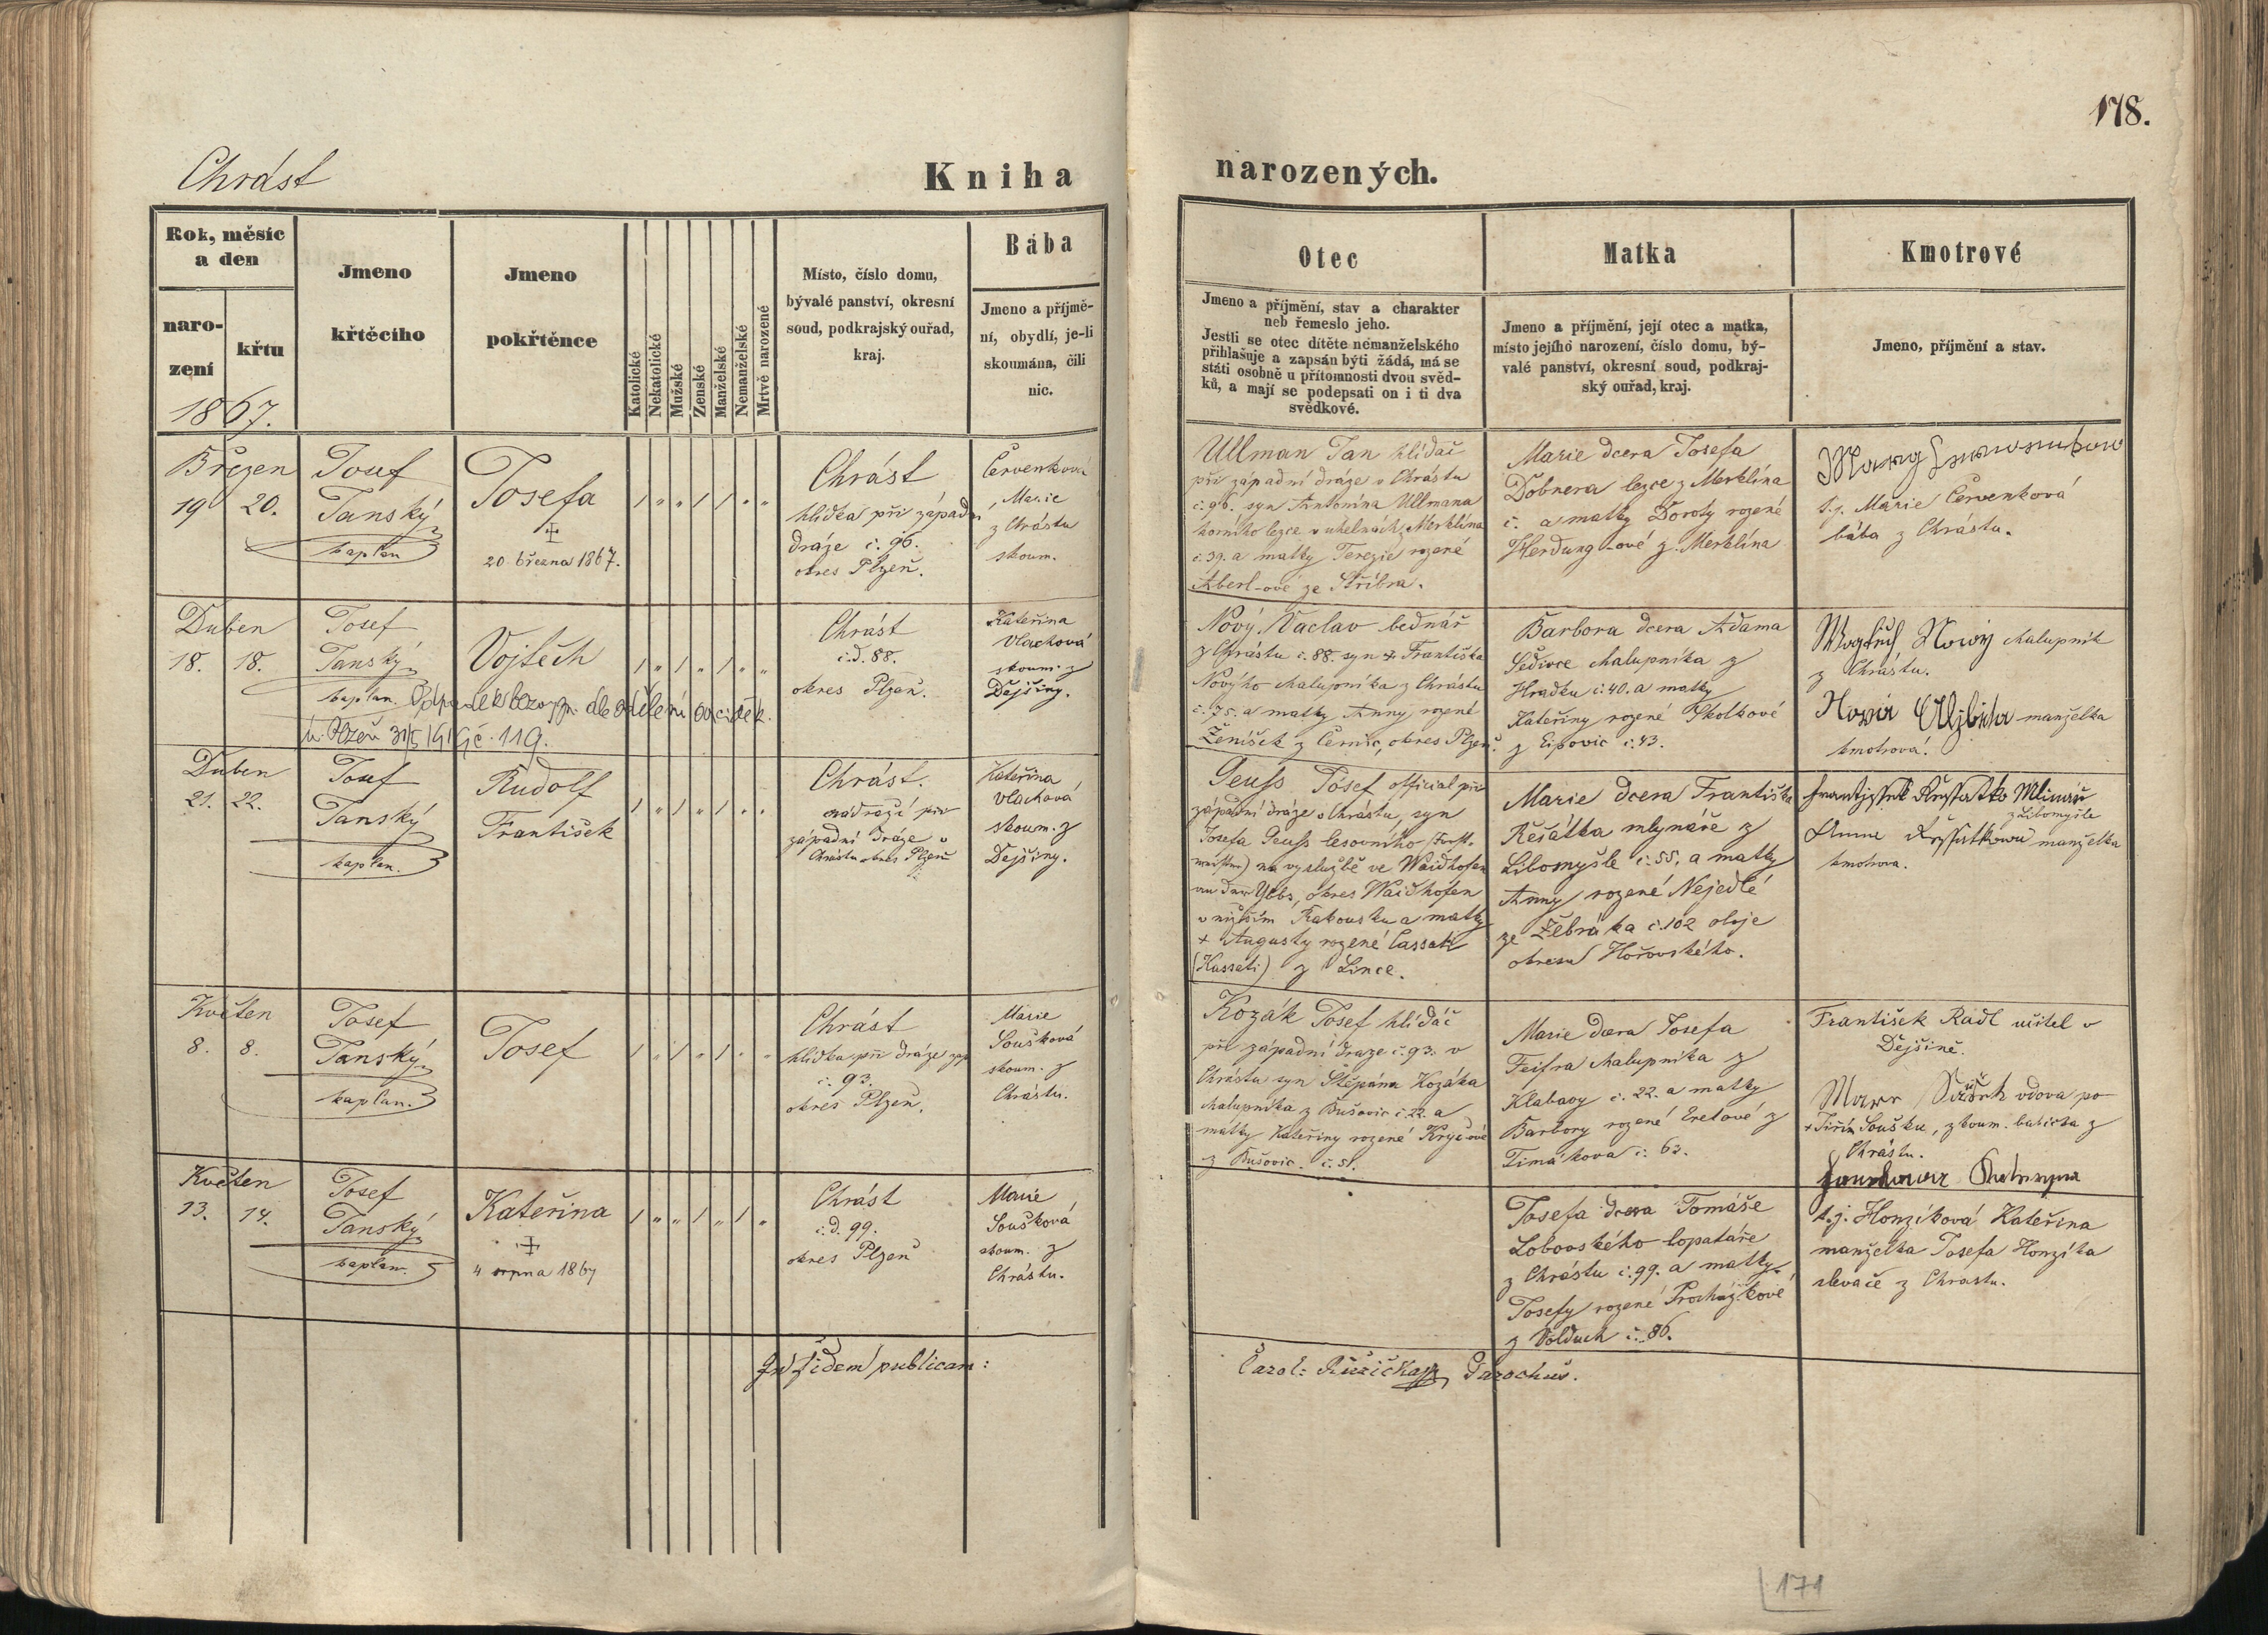 178.
Chrást
Kniha narozených.
Rok, měsíc
a den
naro-
zení
křtu
1867.
Jmeno
křtěcího
Jmeno
pokřtěnce
Katolické
Nekatolické
Mužské
Zenské
Manželské
Nemanželské
Mrtvě narozené
Místo, číslo domu,
bývalé panství, okresní
soud, podkrajský ouřad,
kraj.
Bába
Jmeno a příjmě-
ní, obydlí, je-li
skoumána, čili
nic.
Otec
Jmeno a příjmění, stav a charakter
neb řemeslo jeho.
Jestli se otec dítěte nemanželského
přihlašuje a zapsán býti žádá, má se
státi osobně u přítomnosti dvou svěd-
ků, a mají se podepsati on i ti dva
svědkové.
Matka
Jmeno a příjmění, její otec a matka,
místo jejího narození, číslo domu, bý-
valé panství, okresní soud, podkraj-
ský ouřad, kraj.
Kmotrové
Jmeno, příjmění a stav.
Březen
19 20.
Josef
Janský
kaplan
Josefa
20 března 1867.
Chrást
hlídka při západní
dráze č. 96.
okres Plzeň.
Červenková
Marie
z Chrástu
skoum.
Ullman Jan hlídač
při západní dráze v Chrástu
č. 96. syn Antonína Ullmana
horního lezce v uhelnách z Merklína
č. 39. a matky Terezie rozené
Aberl-ové ze Stříbra.
Marie dcera Josefa
Dobnera lezce z Merklína
č. a matky Doroty rozené
Herdung-ové z Merklína
t. j. Marie Červenková
bába z Chrástu.
Duben
18. 18.
Josef
Janský
kaplan.
Vojtěch
Chrást
č.d. 88.
okres Plzeň.
Kateřina
Vlachová
skoum. z
Dejšiny.
Plzeň 31/5 č. 119.
Nový Vaclav bednář
z Chrástu č. 88. syn Františka
Nového chalupníka z Chrástu
č. 75. a matky Anny rozené
Ženíšek z Černic, okres Plzeň.
Barbora dcera Adama
Šedivce chalupníka z
Hradku č. 40. a matky
Kateřiny rozené Skolkové
z Eipovic č. 43.
Nowý chalupník
z Chrástu.
manželka
kmotrova.
Duben
21. 22.
Josef
Janský
kaplan.
Rudolf
František
Chrást.
nádraží při
západní dráze v
Chrástu okres Plzeň
Kateřina
Vlachová
skoum. z
Dejšiny.
Peuß Josef official při
západní dráze v Chrástu, syn
Josefa Peuß lesovního (Forst-
meister) na výslužbě ve Waidhofen
an der Ybbs, okres Waidhofen
v nižším Rakousku a matky
+ Augusty rozené Cassati
(Kassati) z Lince.
Marie dcera Františka
Řešátka mlynáře z
Libomyšle č. 55. a matky
Anny rozené Nejedlé
ze Žebráka č. 102 oboje
okresu Hořovského.
Mlinář
z Libomyšle
manželka
kmotrova.
Květen
8. 8.
Josef
Janský
kaplan.
Josef
Chrást
hlídka při dráze záp
č. 93.
okres Plzeň.
Marie
Soušková
skoum. z
Chrástu.
Kozák Josef hlídač
při západní draze č. 93. v
Chrástu syn Štěpána Kozáka
chalupníka z Bušovic č. 22. a
matky Kateřiny rozené Kryčové
z Bušovic. č. 51.
Marie dcera Josefa
Feifra chalupníka z
Klabavy č. 22. a matky
Barbory rozené Eretové z
Timákova č. 63.
František Rádl učitel v
Dejšině.
vdova po
+ Jiřím Soušku, zkoum. babicka z
Chrástu.
Květen
13. 14.
Josef
Janský
kaplan.
Kateřina
4 srpna 1867
Chrást
č.d. 99.
okres Plzeň
Marie
Soušková
skoum. z
Chrástu.
Josefa dcera Tomáše
Lobovského lopatáře
z Chrástu č. 99. a matky
Josefy rozené Procházkové
z Volduch č. 86.
t. j. Honzíková Kateřina
manželka Josefa Honzíka
slevače z Chrastu.
In fidem publicam:
Carol: Růžička Parochus.
171